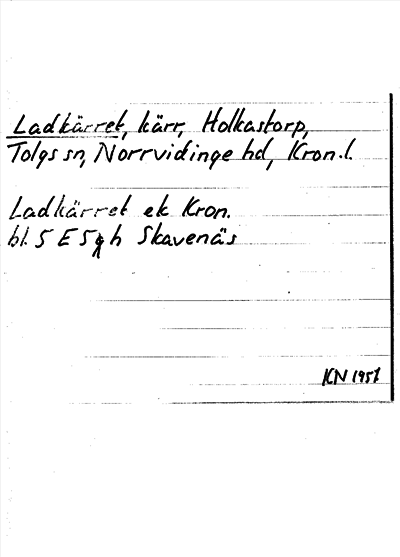 Ladkärret, kärr, Holkastorp,
Tolgs sn, Norrvidinge hd, Kron. l.
Ladkärret ek Kron.
bl. 5 E 5 g h Skavenäs
KN 1951